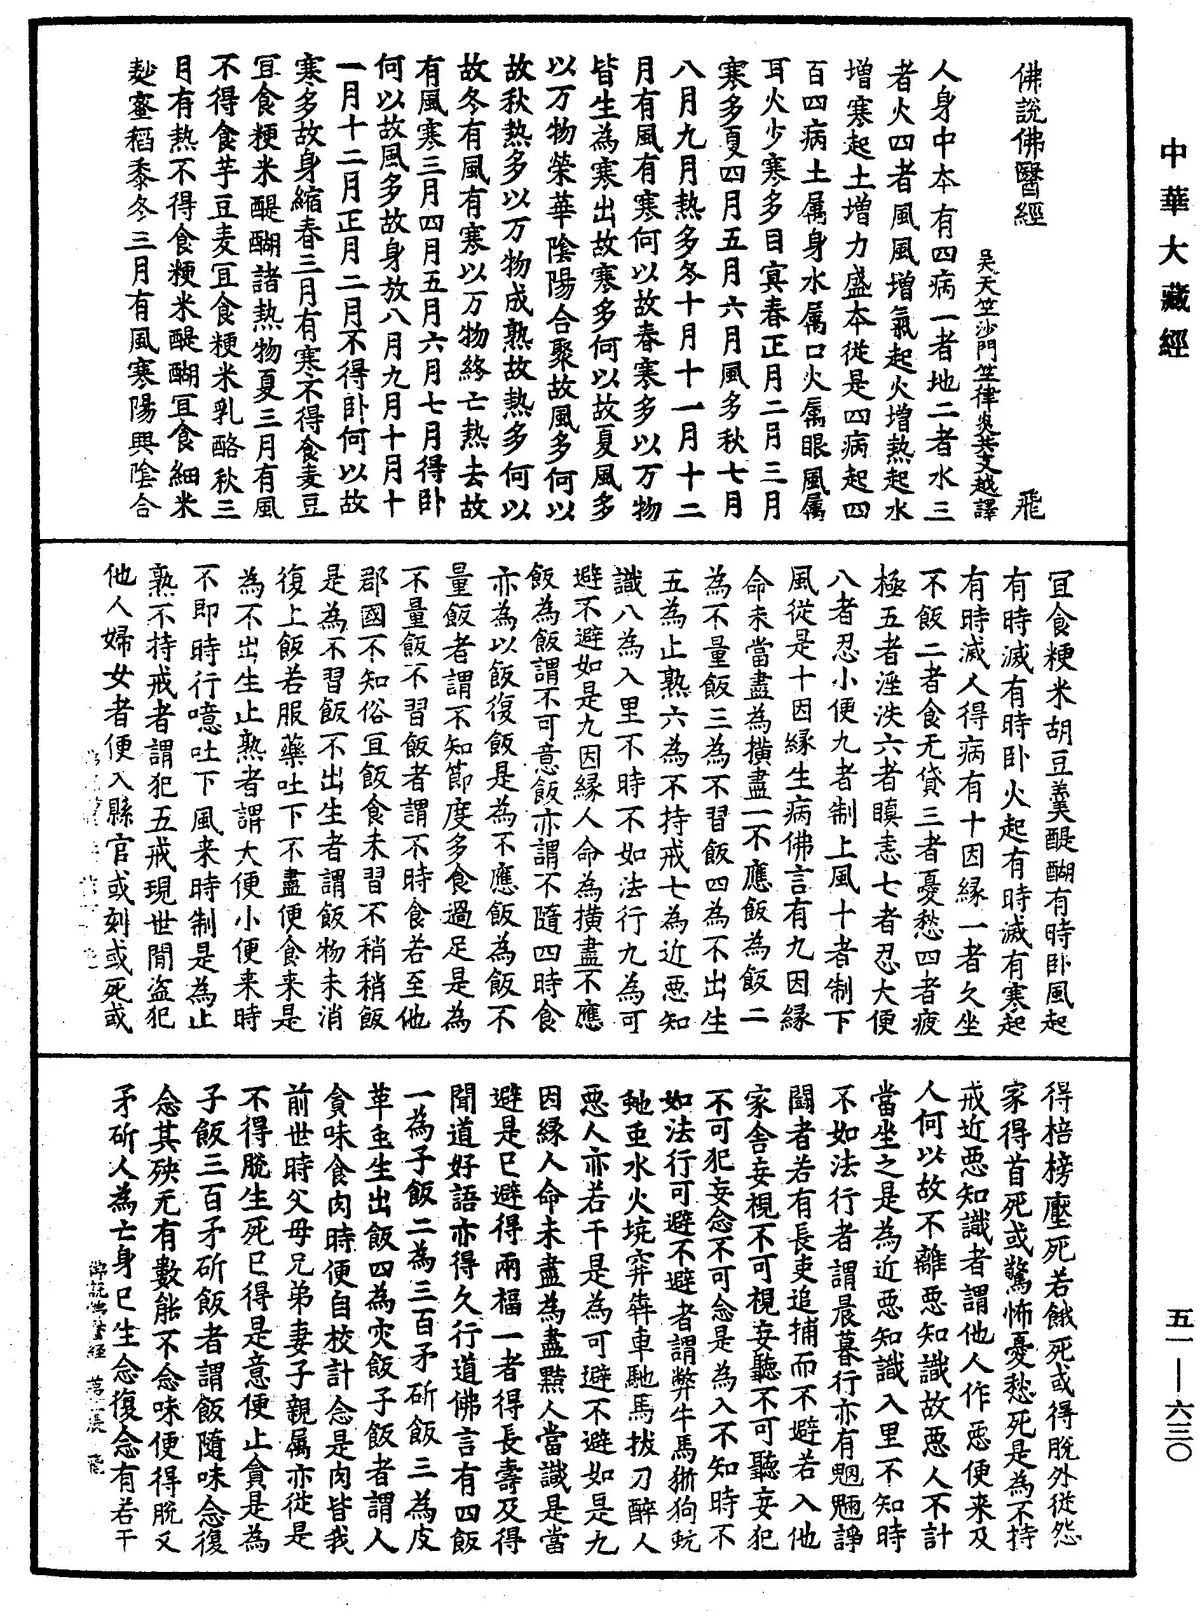 中華大藏經
佛說佛醫經 飛
吳天竺沙門竺律炎共支越譯
人身中本有四病一者地二者水三
者火四者風風增氣起火增熱起水
增寒起土增力盛本從是四病起四
百四病土屬身水屬口火屬眼風屬
耳火少寒多目冥春正月二月三月
寒多夏四月五月六月風多秋七月
八月九月熱多冬十月十一月十二
月有風有寒何以故春寒多以万物
皆生為寒出故寒多何以故夏風多
以万物榮華陰陽合聚故風多何以
故秋熱多以万物成熟故熱多何以
故冬有風有寒以万物終亡熱去故
有風寒三月四月五月六月七月得卧
何以故風多故身放八月九月十月十
一月十二月正月二月不得卧何以故
寒多故身縮春三月有寒不得食麦豆
宜食粳米醍醐諸熱物夏三月有風
不得食芋豆麦宜食粳米乳酪秋三
月有熱不得食粳米醍醐宜食細米
麨蜜稻黍冬三月有風寒陽興陰合
宜食粳米胡豆羹醍醐有時卧風起
有時滅有時卧火起有時滅有寒起
有時滅人得病有十因緣一者久坐
不飯二者食无貸三者憂愁四者疲
極五者淫泆六者瞋恚七者忍大便
八者忍小便九者制上風十者制下
風從是十因緣生病佛言有九因緣
命未當盡為橫盡一不應飯為飯二
為不量飯三為不習飯四為不出生
五為止熟六為不持戒七為近惡知
識八為入里不時不如法行九為可
避不避如是九因緣人命為橫盡不應
飯為飯謂不可意飯亦謂不隨四時食
亦為以飯復飯是為不應飯為飯不
量飯者謂不知節度多食過足是為
不量飯不習飯者謂不時食若至他
郡國不知俗宜飯食未習不稍稍飯
是為不習飯不出生者謂飯物未消
復上飯若服藥吐下不盡便食来是
為不出生止熟者謂大便小便来時
不即時行噫吐下風来時制是為止
熟不持戒者謂犯五戒現世間盜犯
他人婦女者便入縣官或刻或死或
得棓榜壓死若餓死或得脫外從怨
家得首死或驚怖憂愁死是為不持
戒近惡知識者謂他人作惡便来及
人何以故不離惡知識故惡人不計
當坐之是為近惡知識入里不知時
不如法行者謂晨暮行亦有魍魎諍
鬪者若有長吏追捕而不避若入他
家舍妄視不可視妄聽不可聽妄犯
不可犯妄念不可念是為入不知時不
如法行可避不避者謂弊牛馬猘狗蚖
虵䖝水火坑穽犇車馳馬拔刀醉人
惡人亦若干是為可避不避如是九
因緣人命未盡為盡黠人當識是當
避是已避得兩福一者得長壽及得
聞道好語亦得久行道佛言有四飯
一為子飯二為三百矛斫飯三為皮
革䖝生出飯四為灾飯子飯者謂人
貪味食肉時便自校計念是肉皆我
前世時父母兄弟妻子親屬亦從是
不得脫生死已得是意便止貪是為
子飯三百矛斫飯者謂飯隨味念復
念其殃无有數能不念味便得脫又
矛斫人為亡身已生念復念有若干
佛說佛醫經 第二張 飛
五一—六三〇